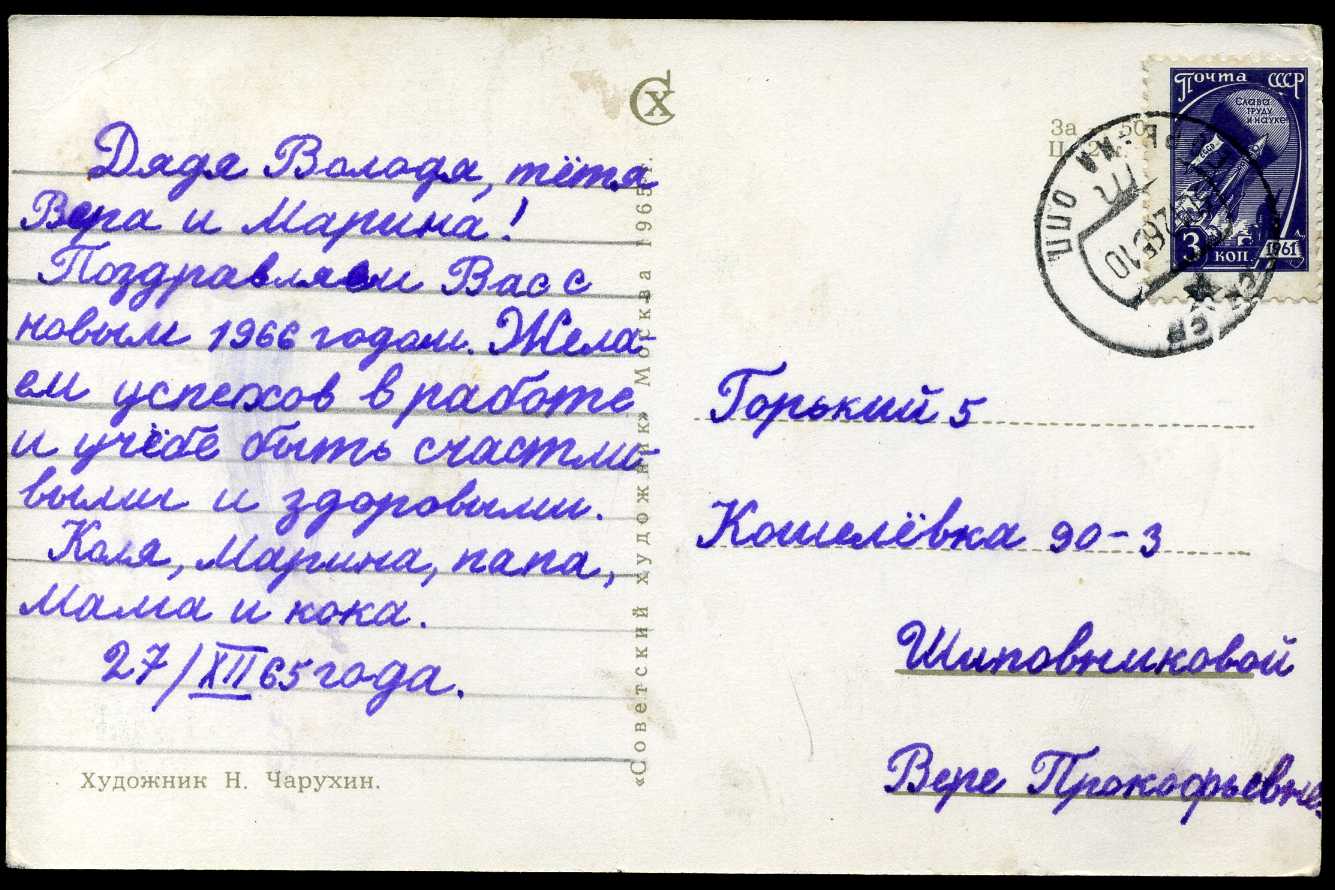 Дядя Володя, тётя
Вера и Марина!
Поздравляем Вас с
новым 1966 годом. Жела-
ем успехов в работе
и учёбе быть счастли-
выми и здоровыми.
Коля, Марина, папа,
Мама и кока.
27/XII 65 года.
Художник Н. Чарухин.
СХ
«Советский художник» Москва 1965
За
50
Почта СССР
Слава
труду
и науке
3 коп.
1961
Горький 5
Кошелёвка 90-3
Шиповниковой
Вере Прокофьевне